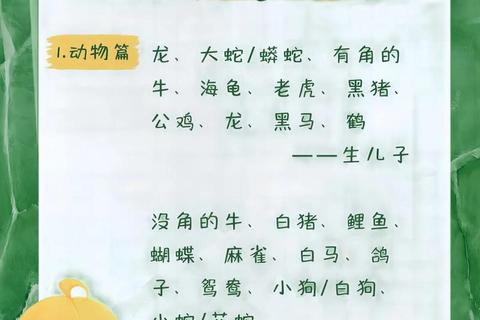 1.动物篇
龙、大蛇/蟒蛇、有角的
牛、海龟、老虎、黑猪、
公鸡、龙、黑马、鹤
——生儿子
没角的牛、白猪、鲤鱼、
蝴蝶、麻雀、白马、鸽
子、鸳鸯、小狗/白狗、
小蛇/花蛇